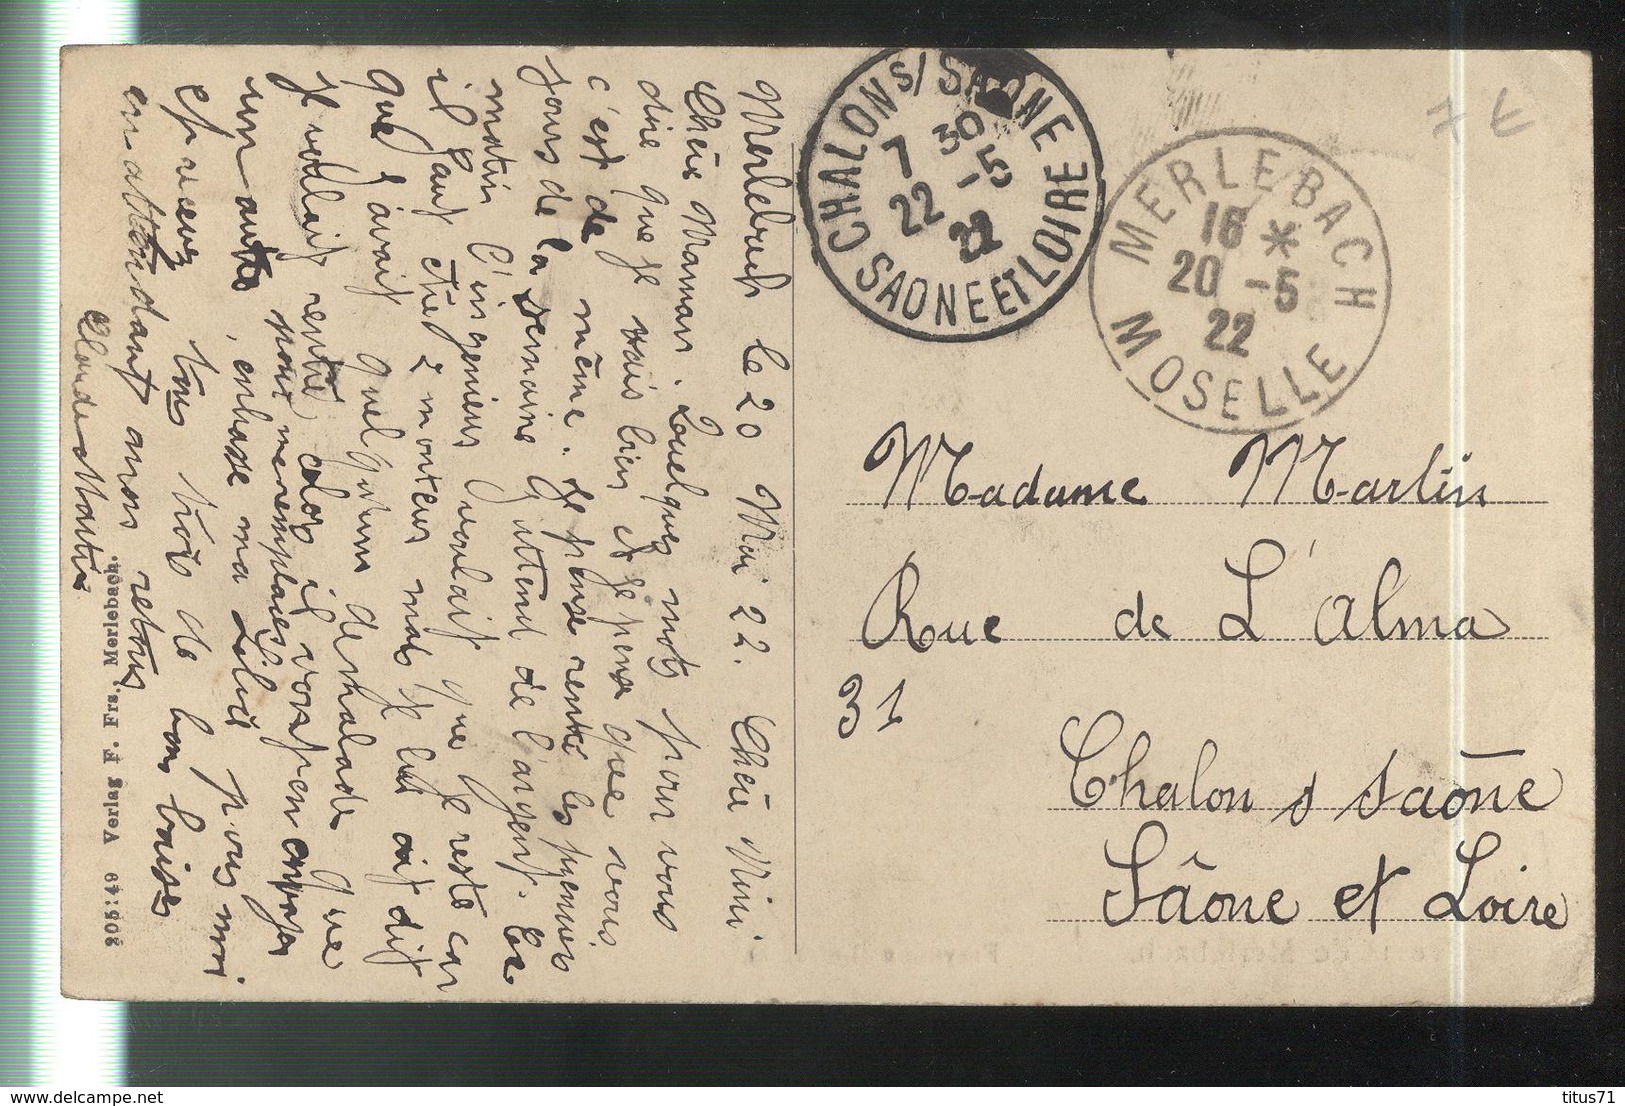 Merlebach le 20 Mai 22. Chère Mimi
Chère Maman. Quelques mots pour vous
dire que je vais bien et je pense que vous
c'est de même. Je pense rentré les premiers
jours de la semaine j'attend de l'argent. Ce
matin l'ingenieur voulait que je reste car
il faut être 2 monteur mais je lui ait dit
que j'avait quelqu'un de malade que
je voulait rentré alors il vons penser envoyer
un autre pour me remplacer
embrasse ma pour moi
vous trois de bons baisers
en attendant mon retour
Claude Martin
305:49 Verlag F. Frs. Merlebach.
CHALON S/ SAONE
7 30
22 -5
22
SAONE ET LOIRE
MERLEBACH
16 *
20 -5
22
MOSELLE
7 €
Madame Martin
Rue de L'Alma
31
Chalon s Saône
Saône et Loire
titus71